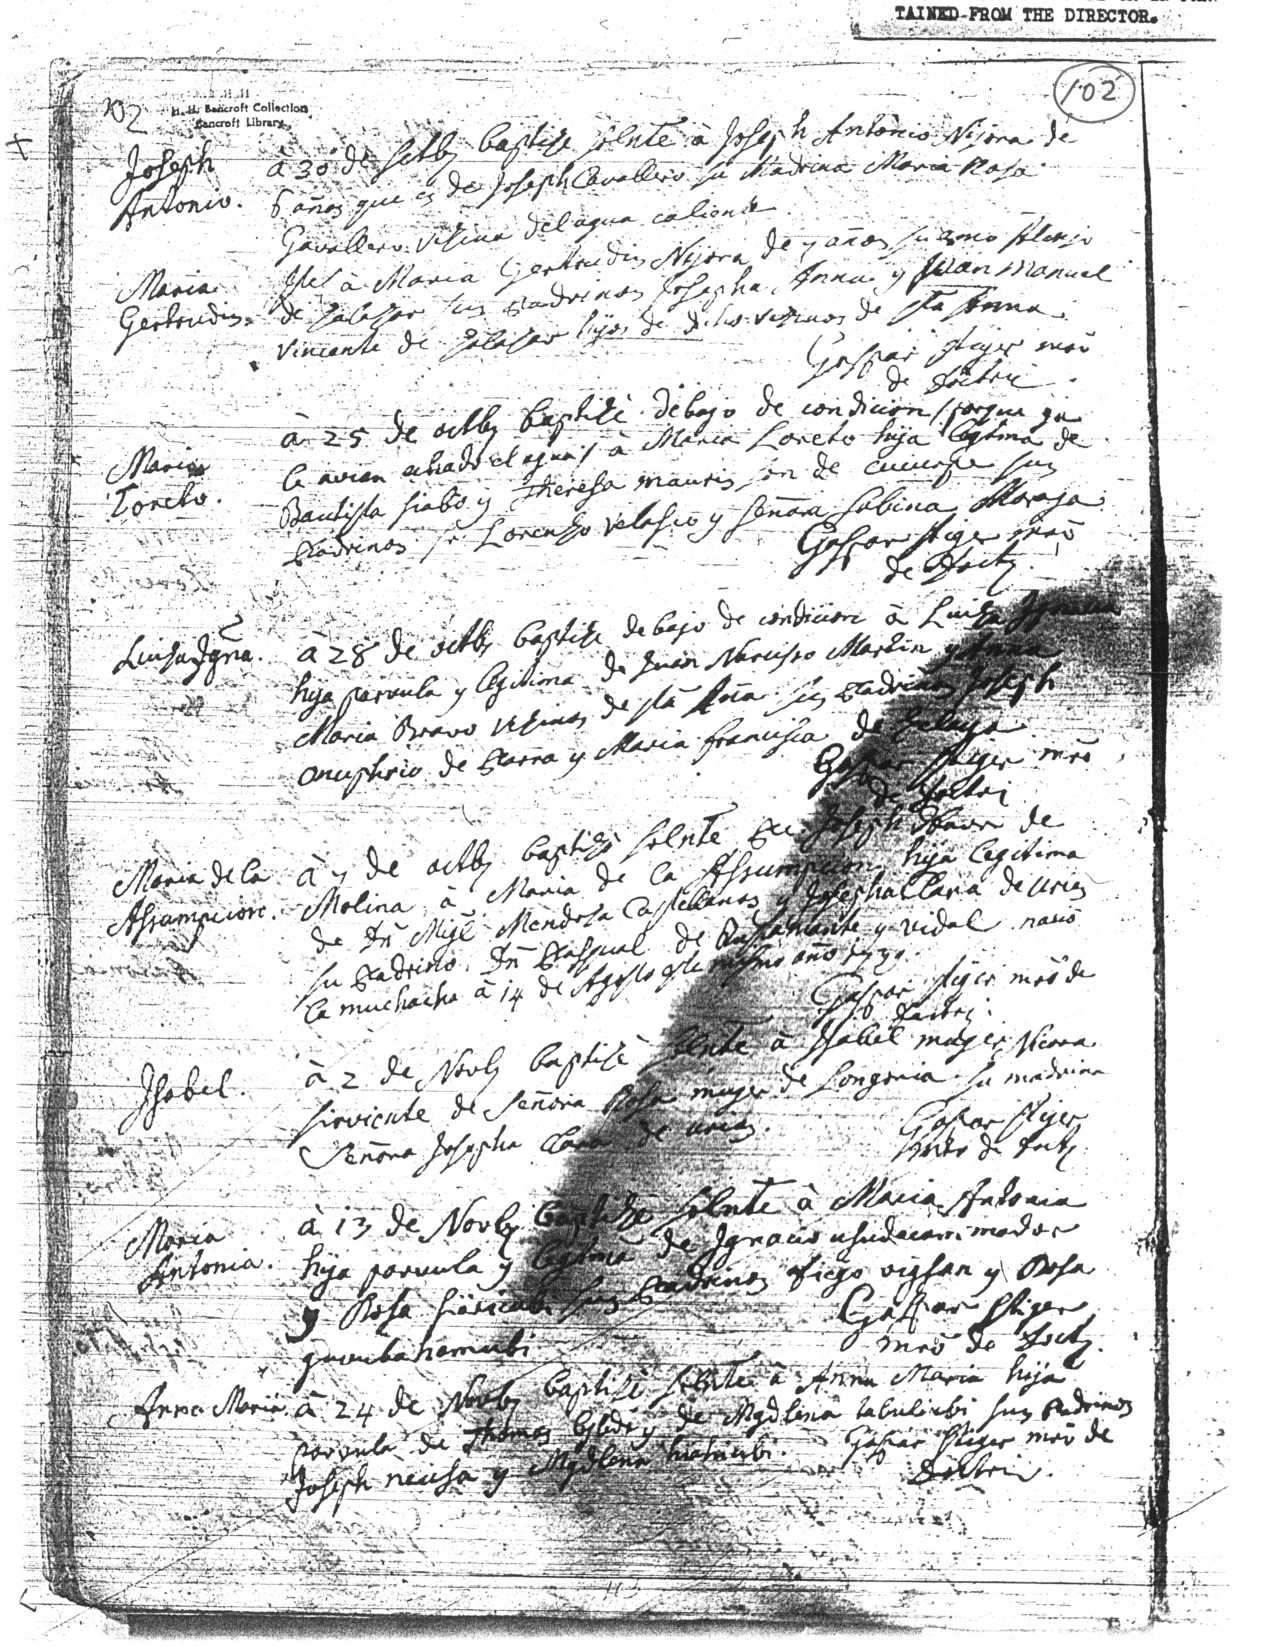 TAINED FROM THE DIRECTOR.
102
102
H. H. Bancroft Collection
Bancroft Library
Joseph
Antonio.
à 30 de baptize solnte à Joseph Antonio Nijora de
6 años que es de Joseph Cavallero su Madrina Maria Rosa
Cavallero vesina del agua caliente
Maria
Gertrudis
à Maria Gertrudis Nijora de 7 años su amo
de Salasar sus Padrinos Josepha Anna y Juan Manuel
Vincente de Salasar hijos de vesinos de sta Anna
Gaspar Stiger mrô
de Doctri
Maria
Loreto.
à 25 de octb baptizè debajo de condicion / porque ya
le avian echado el agua / à Maria Loreto hija legtma de
Bautista siabo y Theresa mauris son de cucurpe sus
Padrinos sr Lorenzo Velasco y señora Sabina Moraga
Gaspar Stiger mrô
de Doct.
Luisa Igna.
à 28 de octb baptize debajo de condicion à Luisa Ignacia
hija parvula y legitima de Juan Narcisso Martin y Anna
Maria Bravo vesinos de sta Aña sus Padrinos Joseph
onuphrio de Parra y Maria francisca de
Gaspar Stiger mrô
de Doctri
Maria de la
Assumpcion.
à 7 de octb baptizò solnte Joseph de
Molina à Maria de la Assumpcion hija legitima
de Dn Migl Mendosa Castellanos y Josepha Clara de Urias
su Padrino Dn Pasqual de Bustamante y vidal naciò
la muchacha à 14 de Agosto este mismo año
Gaspar Stiger mrô de
Doctri.
Isabel.
à 2 de Novb baptizè solnte à Isabel muger Nixora
sirviente de Señora Rosa muger de Longoria su madrina
Señora Josepha Clara de Urias.
Gaspar Stiger
mrô de Doct
Maria
Antonia.
à 13 de Novb baptize solnte à Maria Antonia
hija parvula y legtma de Ignacio
y Rosa sus Padrinos Diego y Rosa
Gaspar Stiger
mrô de Doct.
Anna Maria
à 24 de Novb baptizè solnte à Anna Maria hija
parvula de Thomas y de Mgdlena sus Padrinos
Joseph y Mgdlena
Gaspar Stiger mrô de
Doctri.